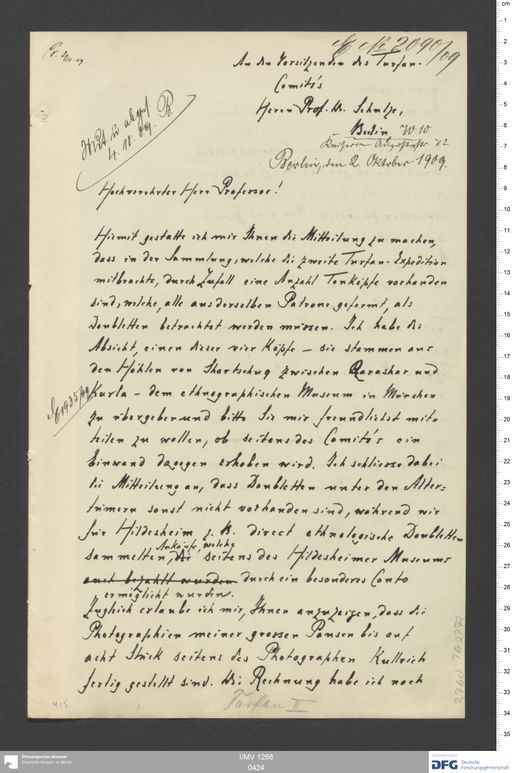 № 2090/09
An den Vorsitzenden des Turfan-
Comité's
Herrn Prof. Dr. Schultze,
Berlin W 10
Kaiserin Augustastr. 72
Berlin, den 2. Oktober 1909.
4. 10. 09. B.
Hochverehrter Herr Professor!
Hiermit gestatte ich mir Ihnen die Mitteilung zu machen,
dass in der Sammlung, welche die zweite Turfan-Expedition
mitbrachte, durch Zufall eine Anzahl Tonköpfe vorhanden
sind, welche, alle aus derselben Patrone geformt, als
Doubletten betrachtet werden müssen. Ich habe die
Absicht, einen dieser vier Köpfe – sie stammen aus
den Höhlen von Shortschug zwischen Qarashar und
Kurla – dem ethnographischen Museum in München
zu übergeben und bitte Sie mir freundlichst mit=
teilen zu wollen, ob seitens des Comité's ein
Einwand dagegen erhoben wird. Ich schliesse dabei
die Mitteilung an, dass Doubletten unter den Alter=
tümern sonst nicht vorhanden sind, während wir
für Hildesheim z. B. direct ethnologische Doubletten
sammelten, Ankäufe, welche seitens des Hildesheimer Museums
auch bezahlt wurden durch ein besonderes Conto
ermöglicht wurden.
Zugleich erlaube ich mir, Ihnen anzuzeigen, dass die
Photographien meiner grossen Pausen bis auf
acht Stück seitens des Photographen Kullrich
fertig gestellt sind. Die Rechnung habe ich noch
Turfan II
415
TA 2772
I/MV 1268
0424
Ethnologisches Museum
Staatliche Museen zu Berlin
DFG Deutsche
Forschungsgemeinschaft